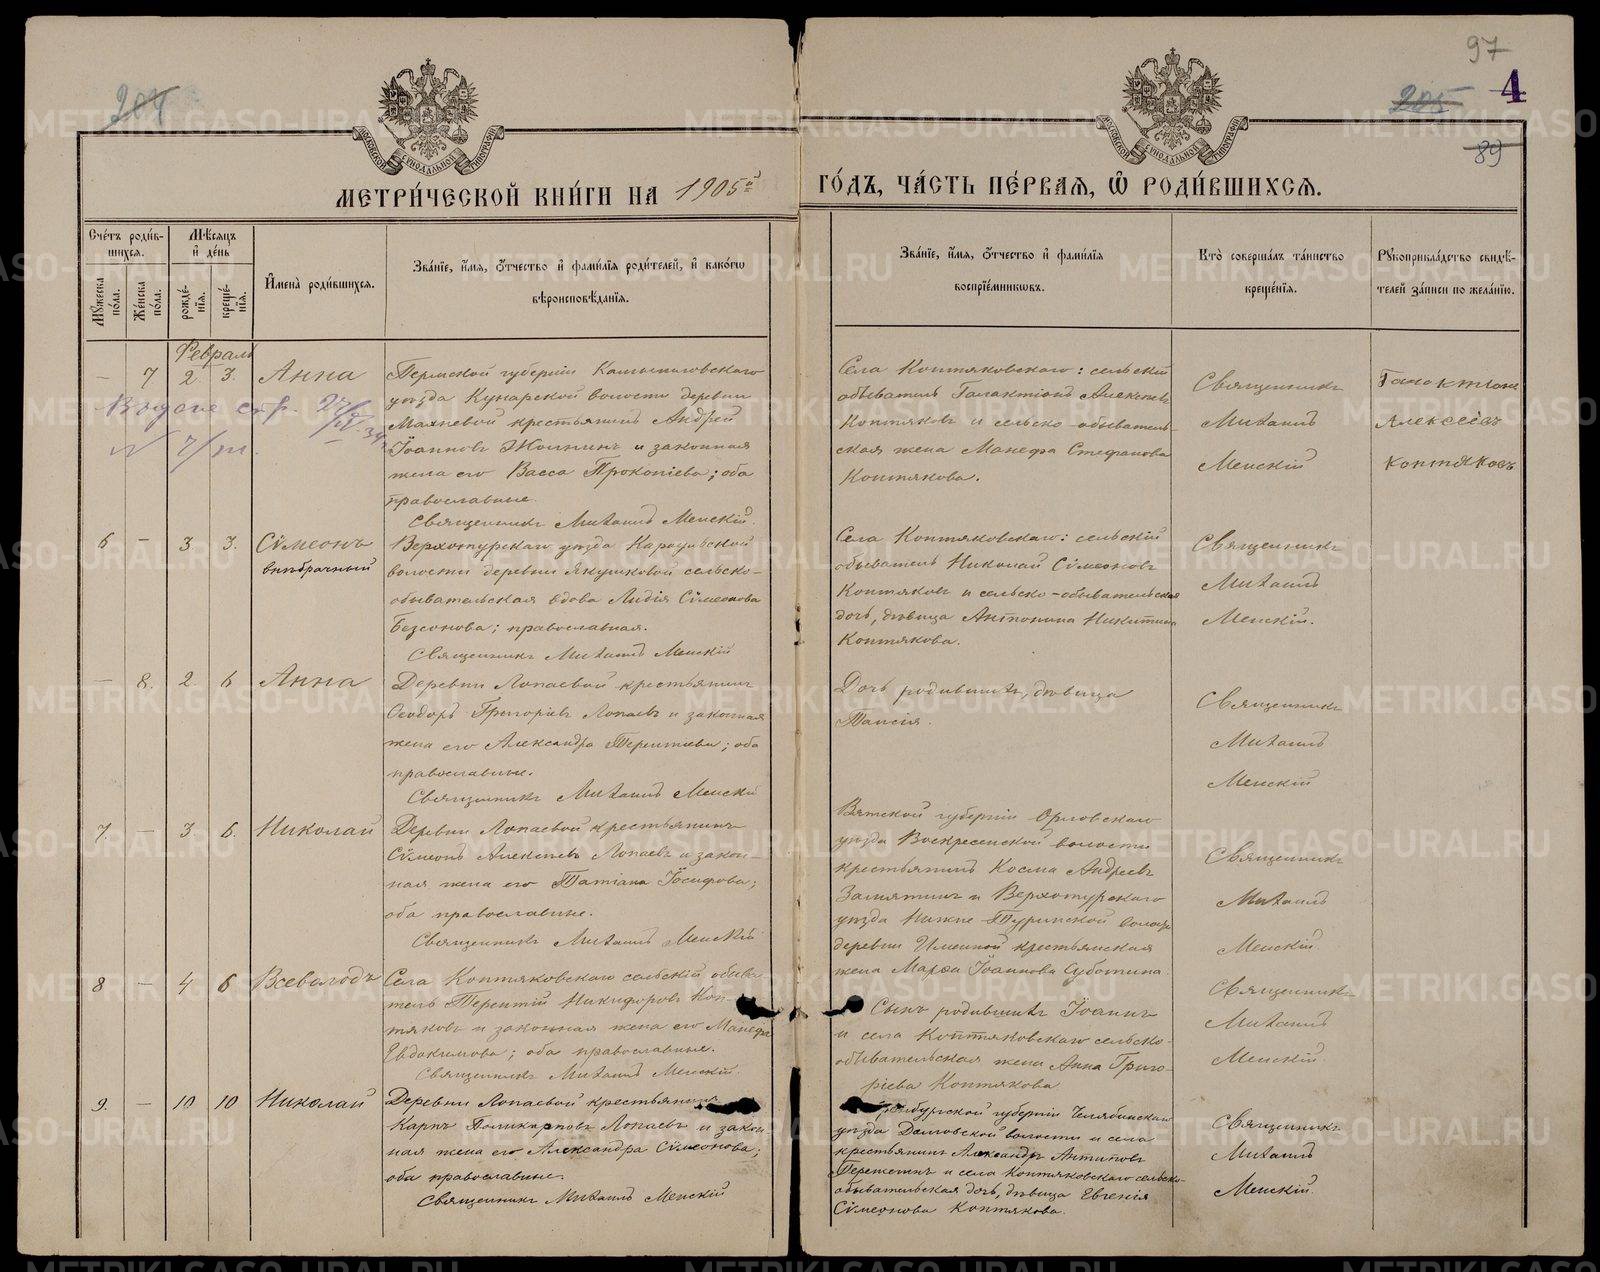 204
97
205
4
89
МОСКОВСКОЙ СѴНОДАЛЬНОЙ ТИПОГРАФІИ
МОСКОВСКОЙ СѴНОДАЛЬНОЙ ТИПОГРАФІИ
МЕТРИ́ЧЕСКОЙ КНИ́ГИ НА 1905й ГО́ДЪ, ЧА́СТЬ ПЕ́РВАЯ, Ѡ РОДИ́ВШИХСЯ.
Сче́тъ роди́в-
шихся.
Мѣ́сяцъ
и́ де́нь
Мꙋ́жеска по́ла.
Же́нска по́ла.
рожде́-
нїя.
креще́-
нїя.
И҆мена̀ роди́вшихся.
Зва́нїе, и҆́мя, ѻ҆́тчество и҆ фами́лїя роди́телей, и҆ како́гѡ
вѣроисповѣ́данїя.
Зва́нїе, и҆́мя, ѻ҆́тчество и҆ фами́лїя
воспрїе́мникѡвъ.
Кто̀ соверша́лъ та́инство
креще́нїя.
Рꙋкоприкла́дство свидѣ́-
телей за́писи по жела́нїю.
Февраль
– 7 2. 3. Анна
Пермской губерніи Камышловскаго
уѣзда Кунарской волости деревни
Махневой крестьянинъ Андрей
Іоанновъ и законная
жена его Васса Прокопіева; оба
православные.
Священникъ Михаилъ Менскій.
Села Коптяковскаго: сельскій
обыватель Галактіонъ Алексѣевъ
Коптяковъ и сельско-обыватель-
ская жена Манефа Стефанова
Коптякова.
Священникъ
Михаилъ
Менскій
Галактіонъ
Алексѣевъ
Коптяковъ
6 – 3. 3. Сѵмеонъ
внѣбрачный
Верхотурскаго уѣзда Караульской
волости деревни Якушковой сельско-
обывательская вдова Лидія Сѵмеонова
Безсонова; православная.
Священникъ Михаилъ Менскій
Села Коптяковскаго: сельскій
обыватель Николай Сѵмеоновъ
Коптяковъ и сельско-обывательская
дочь, дѣвица Антонина Никитина
Коптякова.
Священникъ
Михаилъ
Менскій.
– 8. 2. 6 Анна
Деревни Лопаевой крестьянинъ
Ѳеодоръ Григоріевъ Лопаевъ и законная
жена его Александра Терентіева; оба
православные.
Священникъ Михаилъ Менскій
Дочь родившихъ, дѣвица
Таисія.
Священникъ
Михаилъ
Менскій
7. – 3 6. Николай
Деревни Лопаевой крестьянинъ
Сѵмеонъ Алексѣевъ Лопаевъ и закон-
ная жена его Татіана Іосифова;
оба православные.
Священникъ Михаилъ Менскій
Вятской губерніи Орловскаго
уѣзда Воскресенской волости
крестьянинъ Косма Андреевъ
Замятинъ и Верхотурскаго
уѣзда Нижне-Туринской волости
деревни Именной крестьянская
жена Марѳа Іоаннова Суботина.
Священникъ
Михаилъ
Менскій.
8 – 4 6 Всеволодъ
Села Коптяковскаго сельскій обыва-
тель Терентій Никифоровъ Коп-
тяковъ и законная жена его Манефа
Евдокимова; оба православные.
Священникъ Михаилъ Менскій.
Сынъ родившихъ Іоаннъ
и села Коптяковскаго сельско-
обывательская жена Анна Григо-
ріева Коптякова
Священникъ
Михаилъ
Менскій.
9. – 10 10 Николай
Деревни Лопаевой крестьянинъ
Карпъ Поликарповъ Лопаевъ и закон-
ная жена его Александра Сѵмеонова;
оба православные.
Священникъ Михаилъ Менскій
ренбургской губерніи Челябинскаго
уѣзда Долговской волости и села
крестьянинъ Александръ Антиповъ
и села Коптяковскаго сельско-
обывательская дочь, дѣвица Евгенія
Сѵмеонова Коптякова.
Священникъ
Михаилъ
Менскій.
METRIKI.GASO-URAL.RU